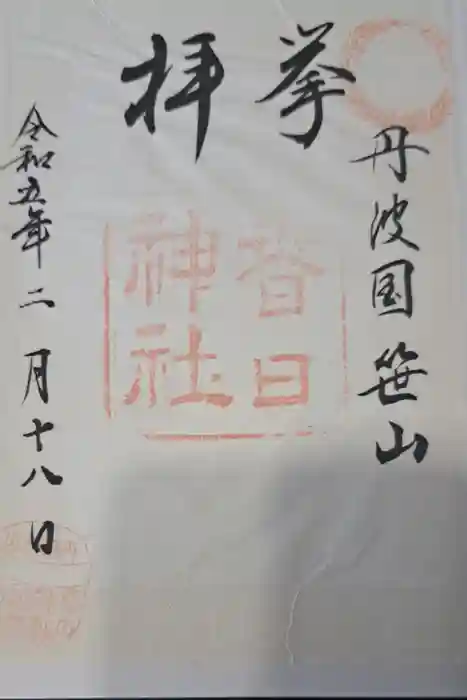 丹波国笹山
奉拝
春日
神社
令和五年二月十八日